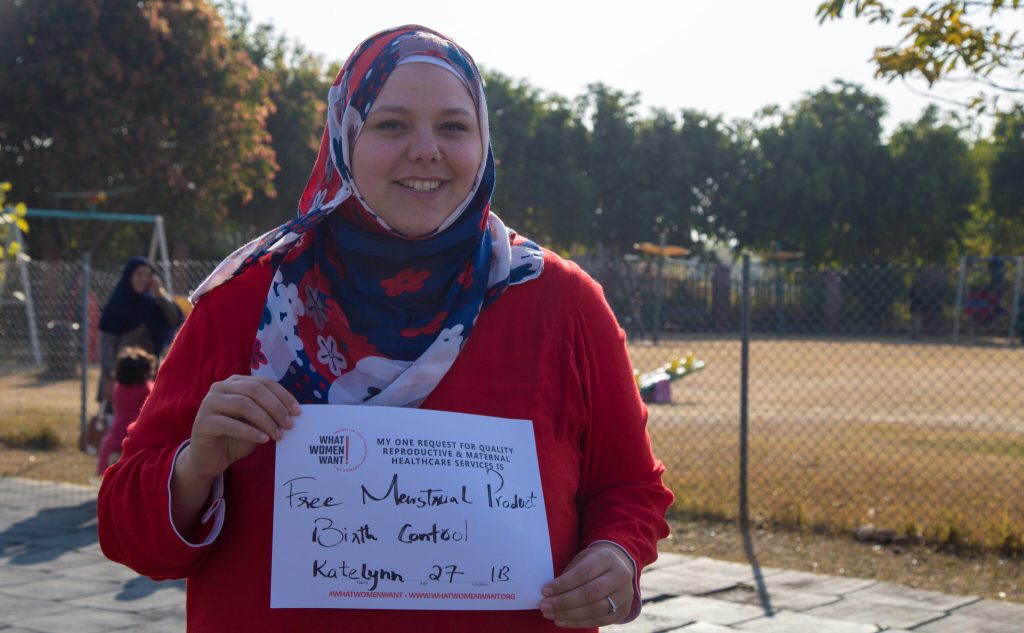 WHAT
WOMEN
WANT!
MY ONE REQUEST FOR QUALITY
REPRODUCTIVE & MATERNAL
HEALTHCARE SERVICES IS
Free Menstrual Product
Birth Control
Katelynn 27 IB
Name Age Location
#WHATWOMENWANT • WWW.WHATWOMENWANT.ORG